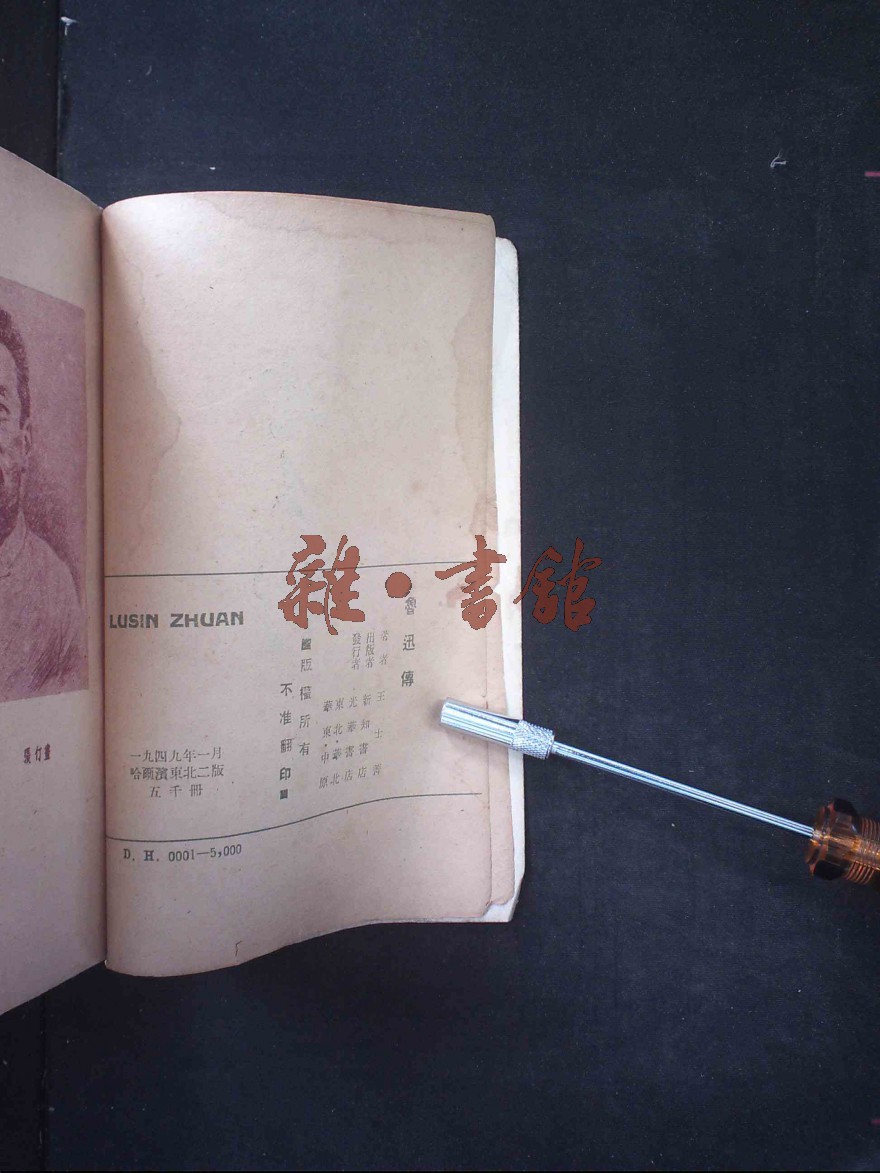 雜·書館
魯迅傳
著者 王士菁
出版者 新知書店
發行者 光華書店
東北·華北
華東·中原
版權所有
不准翻印
LUSIN ZHUAN
一九四九年一月
哈爾濱東北二版
五千冊
D. H. 0001—5,000
張仃畫